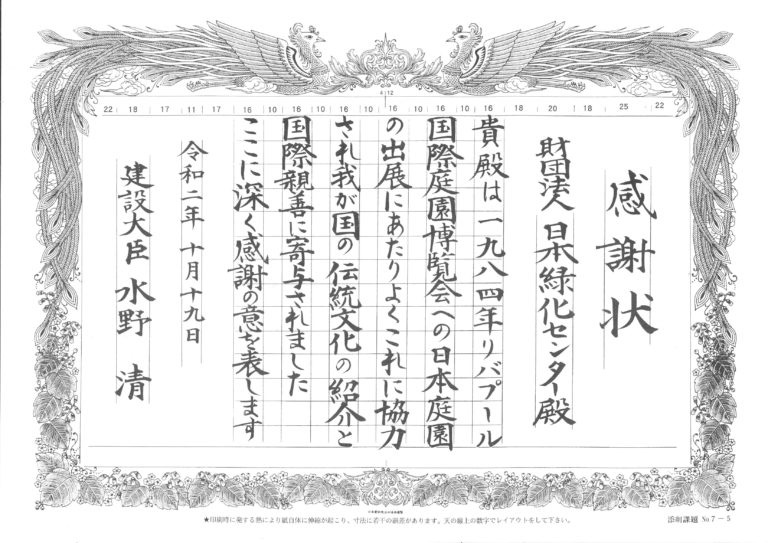 22 18 17 11 17 16 10 16 10 16 10 16 10 16 10 16 18 20 18 25 22
4 12
感謝状
財団法人 日本緑化センター殿
貴殿は一九八四年リバプール
国際庭園博覧会への日本庭園
の出展にあたりよくこれに協力
され我が国の伝統文化の紹介と
国際親善に寄与されました
ここに深く感謝の意を表します
令和二年 十月十九日
建設大臣 水野 清
★印刷時に発する熱により紙自体に伸縮が起こり、寸法に若干の誤差があります。天の線上の数字でレイアウトをして下さい。
添削課題 No7-5